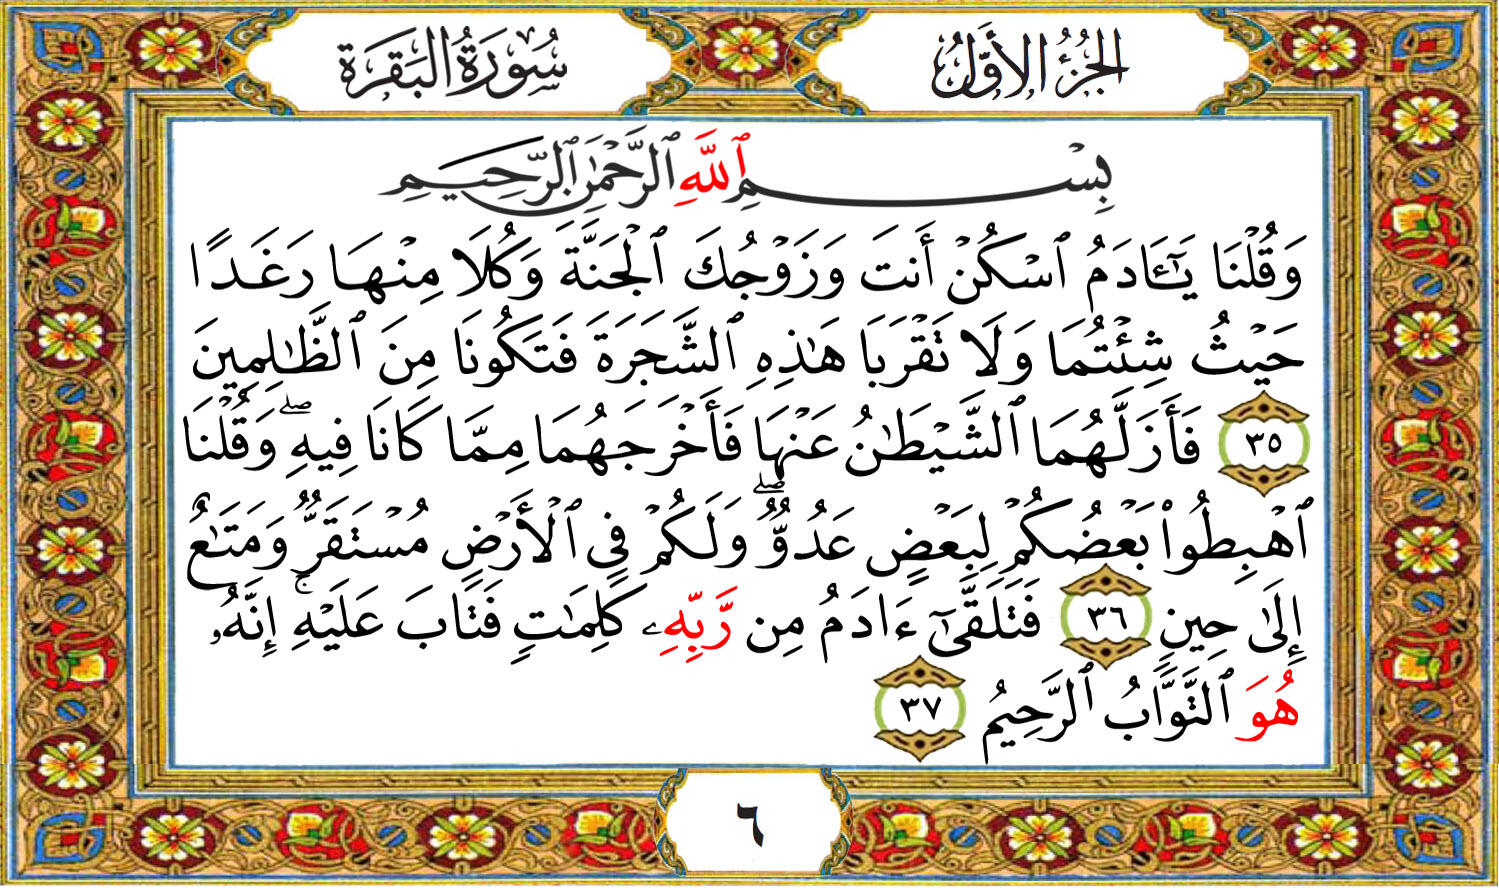 الجُزْءُ الأَوَّلُ
سُورَةُ البَقَرَة
بِسْمِ ٱللَّهِ ٱلرَّحْمَٰنِ ٱلرَّحِيمِ
وَقُلْنَا يَٰٓـَٔادَمُ ٱسْكُنْ أَنتَ وَزَوْجُكَ ٱلْجَنَّةَ وَكُلَا مِنْهَا رَغَدًا
حَيْثُ شِئْتُمَا وَلَا تَقْرَبَا هَٰذِهِ ٱلشَّجَرَةَ فَتَكُونَا مِنَ ٱلظَّٰلِمِينَ
٣٥ فَأَزَلَّهُمَا ٱلشَّيْطَٰنُ عَنْهَا فَأَخْرَجَهُمَا مِمَّا كَانَا فِيهِ ۖ وَقُلْنَا
ٱهْبِطُوا۟ بَعْضُكُمْ لِبَعْضٍ عَدُوٌّ ۖ وَلَكُمْ فِى ٱلْأَرْضِ مُسْتَقَرٌّ وَمَتَٰعٌ
إِلَىٰ حِينٍ ٣٦ فَتَلَقَّىٰٓ ءَادَمُ مِن رَّبِّهِۦ كَلِمَٰتٍ فَتَابَ عَلَيْهِ ۚ إِنَّهُۥ
هُوَ ٱلتَّوَّابُ ٱلرَّحِيمُ ٣٧
٦